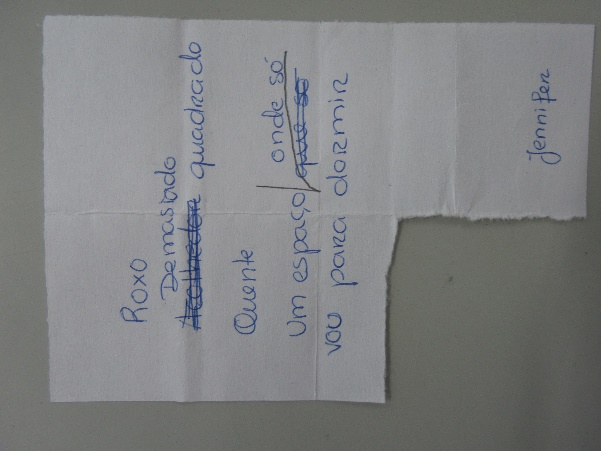 Roxo
Demasiado
Acolhedor quadrado
Quente
Um espaço onde só
que só
vou para dormir
Jennifer